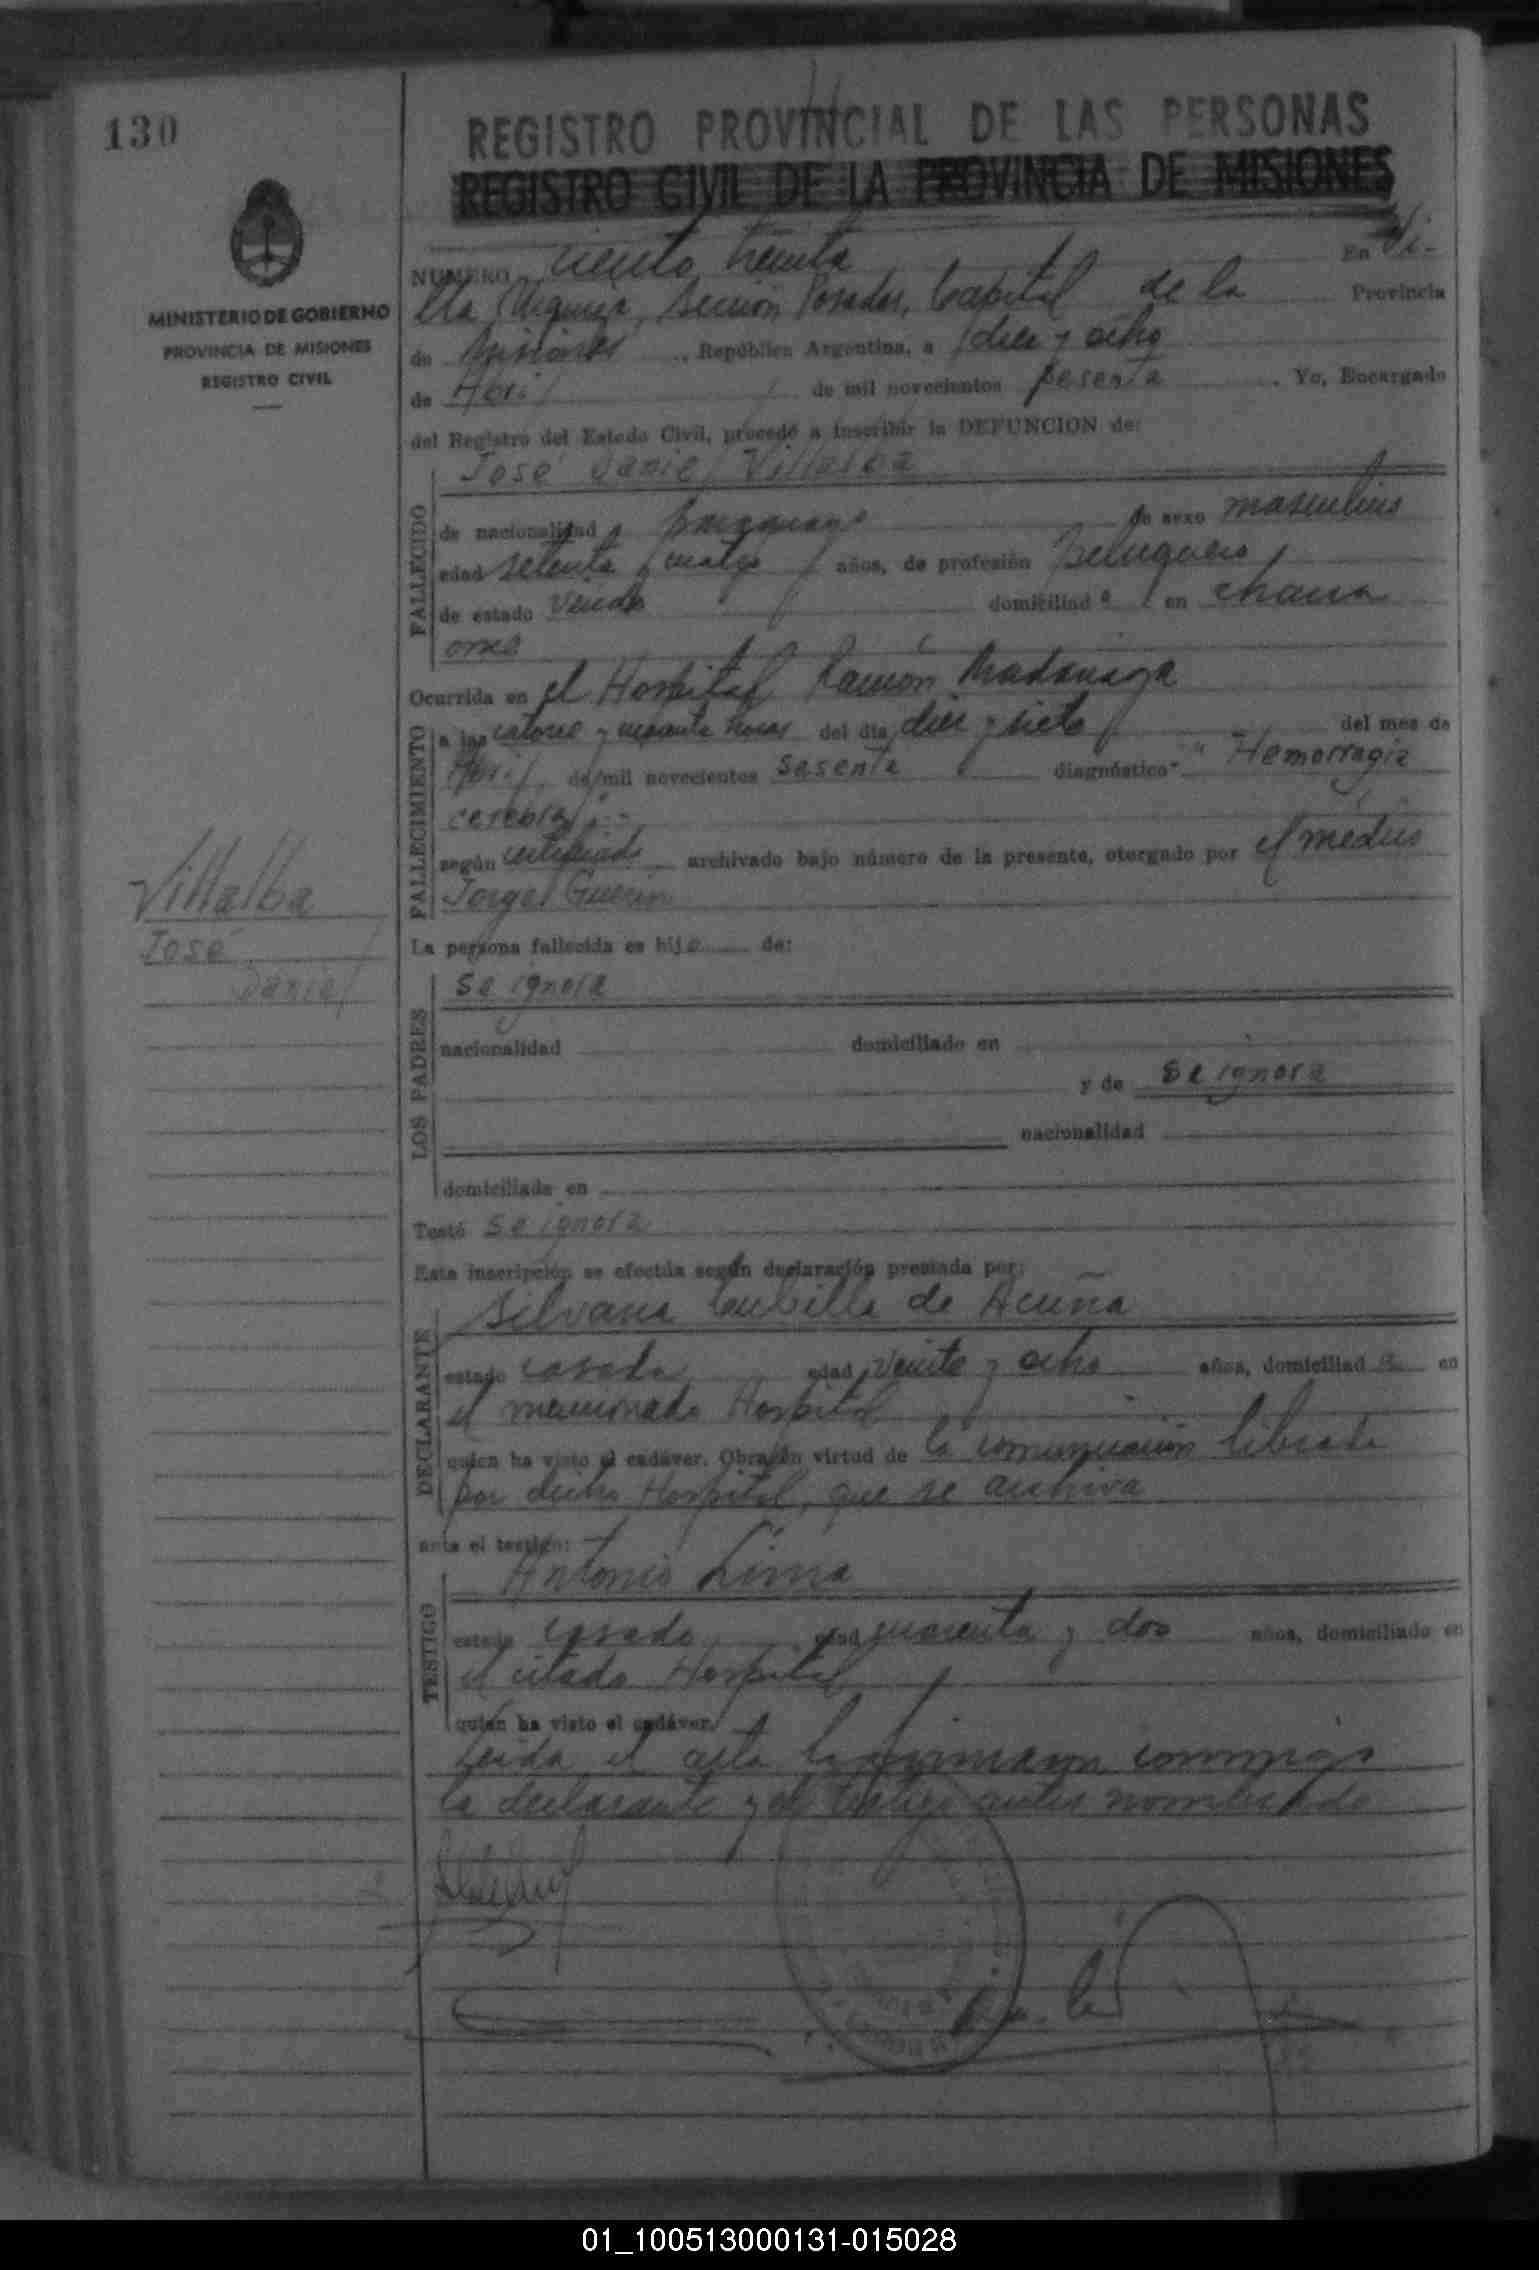 130
REGISTRO PROVINCIAL DE LAS PERSONAS
REGISTRO CIVIL DE LA PROVINCIA DE MISIONES
MINISTERIO DE GOBIERNO
PROVINCIA DE MISIONES
REGISTRO CIVIL
NUMERO ciento treinta En Vi-
lla Urquiza, Sección Posadas, Capital de la Provincia
de Misiones, República Argentina, a diez y ocho
de Abril de mil novecientos sesenta. Yo, Encargado
del Registro del Estado Civil, procedo a inscribir la DEFUNCION de:
José Daniel Villalba
FALLECIDO
de nacionalidad paraguayo de sexo masculino
edad setenta y cuatro años, de profesión peluquero
de estado viudo domiciliado en chacra
once
Ocurrida en el Hospital Ramón Madariaga
FALLECIMIENTO
a las catorce y cuarenta horas del día diez y siete del mes de
Abril de mil novecientos sesenta diagnóstico "Hemorragia
cerebral".-
según certificado archivado bajo número de la presente, otorgado por el médico
Jorge Guerin
Villalba
José
Daniel
La persona fallecida es hijo de:
LOS PADRES
se ignora
nacionalidad domiciliado en
y de se ignora
nacionalidad
domiciliada en
Testó se ignora
Esta inscripción se efectúa según declaración prestada por:
DECLARANTE
Silvana Cubilla de Acuña
estado casada edad veinte y ocho años, domiciliada en
el mencionado Hospital
quien ha visto el cadáver. Obra en virtud de la comunicación librada
por dicho Hospital, que se archiva
ante el testigo:
TESTIGO
Antonio Lima
estado casado edad cuarenta y dos años, domiciliado en
el citado Hospital
quien ha visto el cadáver.
Leida el acta la firmaron conmigo
la declarante y el testigo antes nombrado
01_100513000131-015028